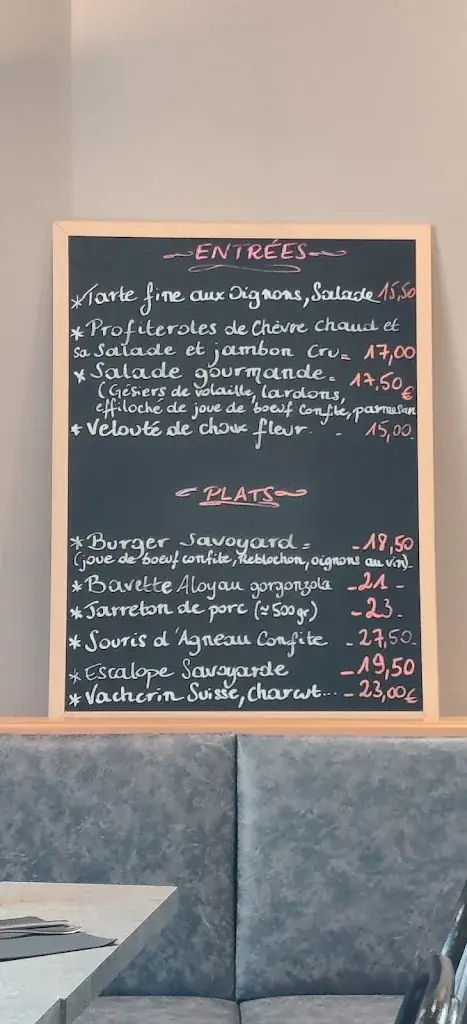 ENTRÉES
*Tarte fine aux Oignons, Salade 15,50
* Profiteroles de Chèvre Chaud et
Sa Salade et jambon Cru= 17,00
* Salade gourmande. 17,50€
(Gésiers de volaille, lardons,
effiloché de joue de boeuf Confite, parmesan
* Velouté de choux fleur. - 15,00.
PLATS
*Burger Savoyard = -18,50
(joue de boeuf confite, Reblochon, oignons au vin)
*Bavette Aloyau gorgonzola -21-
*Jarreton de porc (≈500gr) -23-
*Souris d'Agneau Confite - 27,50-
*Escalope Savoyarde -19,50
*Vacherin Suisse, charcut... - 23,00€